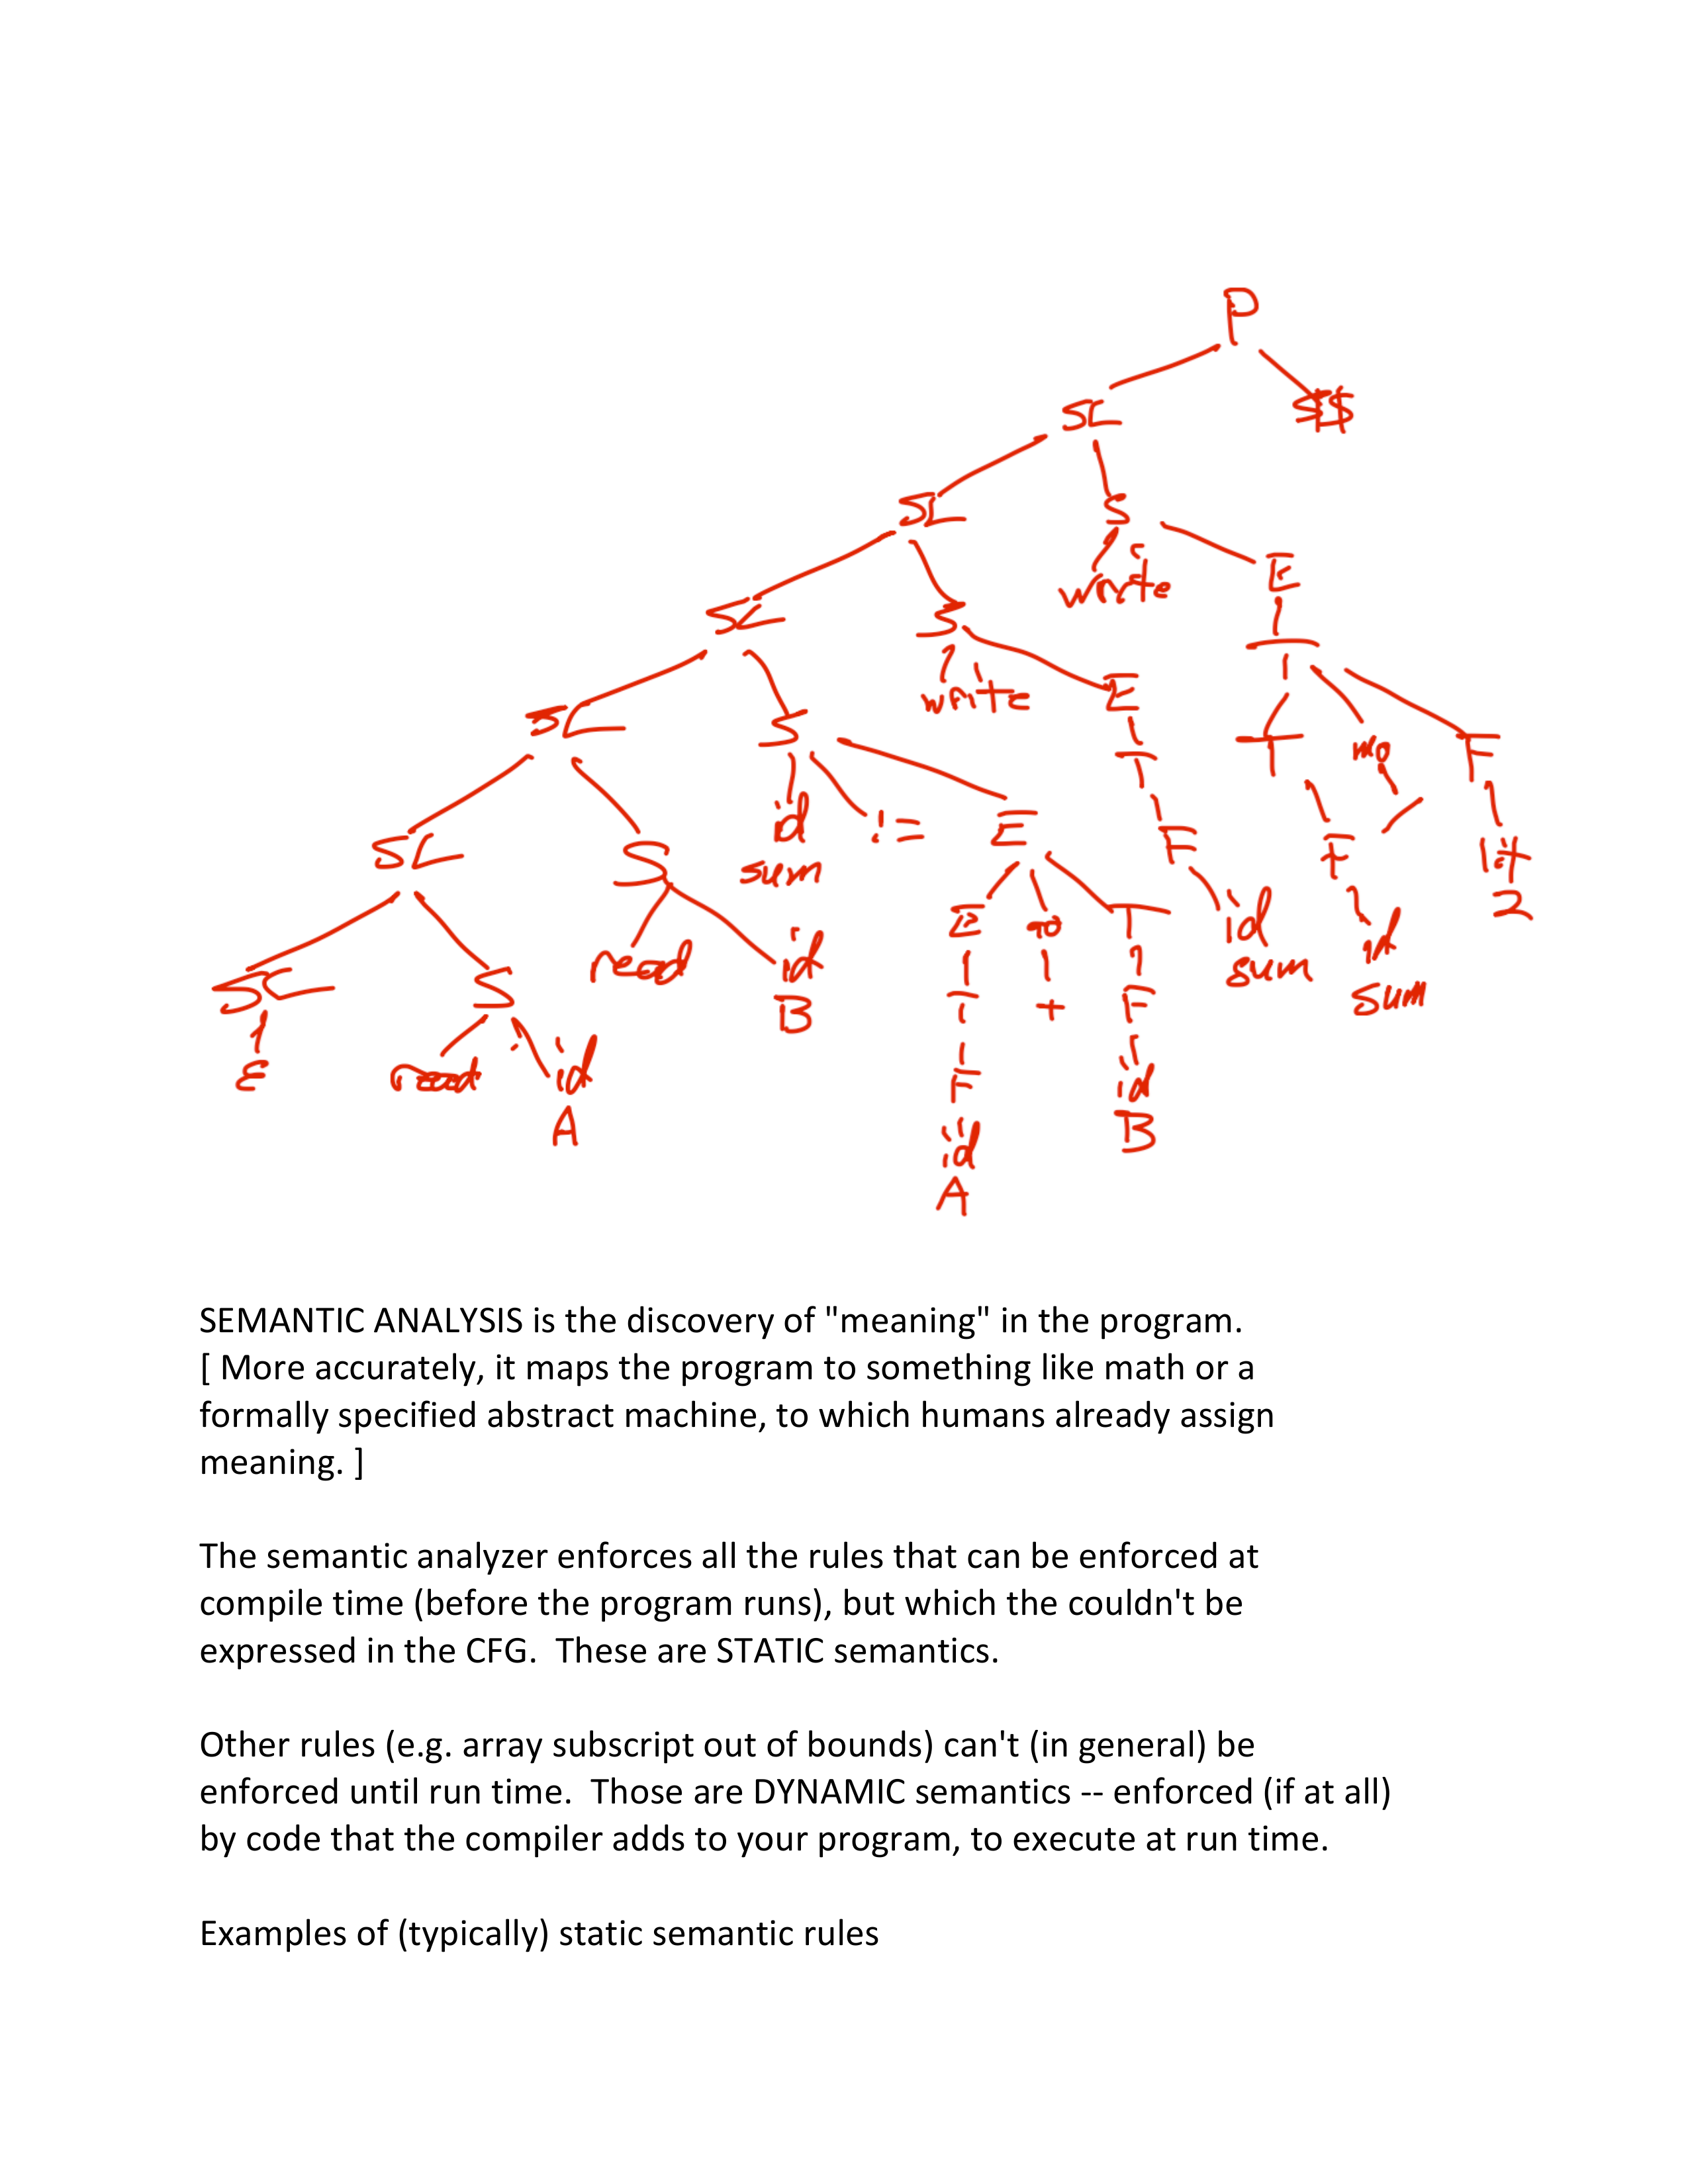 P
SL $$
SL S
write E
SL S
write E T
SL S T mo F
id := E T
sum
SL S F F lit
E ao T id id 2
sum sum
SL S read id T + F
B
ε read id F id
A B
id
A
SEMANTIC ANALYSIS is the discovery of "meaning" in the program.
[ More accurately, it maps the program to something like math or a
formally specified abstract machine, to which humans already assign
meaning. ]
The semantic analyzer enforces all the rules that can be enforced at
compile time (before the program runs), but which the couldn't be
expressed in the CFG.  These are STATIC semantics.
Other rules (e.g. array subscript out of bounds) can't (in general) be
enforced until run time.  Those are DYNAMIC semantics -- enforced (if at all)
by code that the compiler adds to your program, to execute at run time.
Examples of (typically) static semantic rules